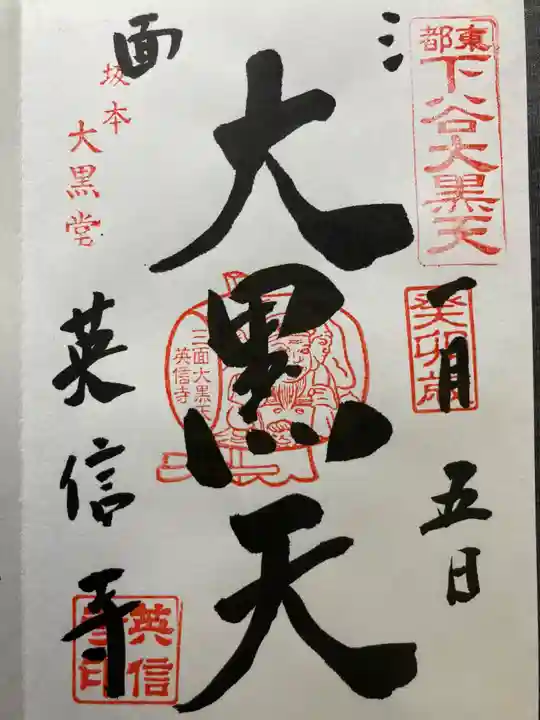 東都
下谷大黒天
癸卯歳
一月五日
三面
大黒天
三面大黒天
英信寺
坂本
大黒堂
英信寺
英信